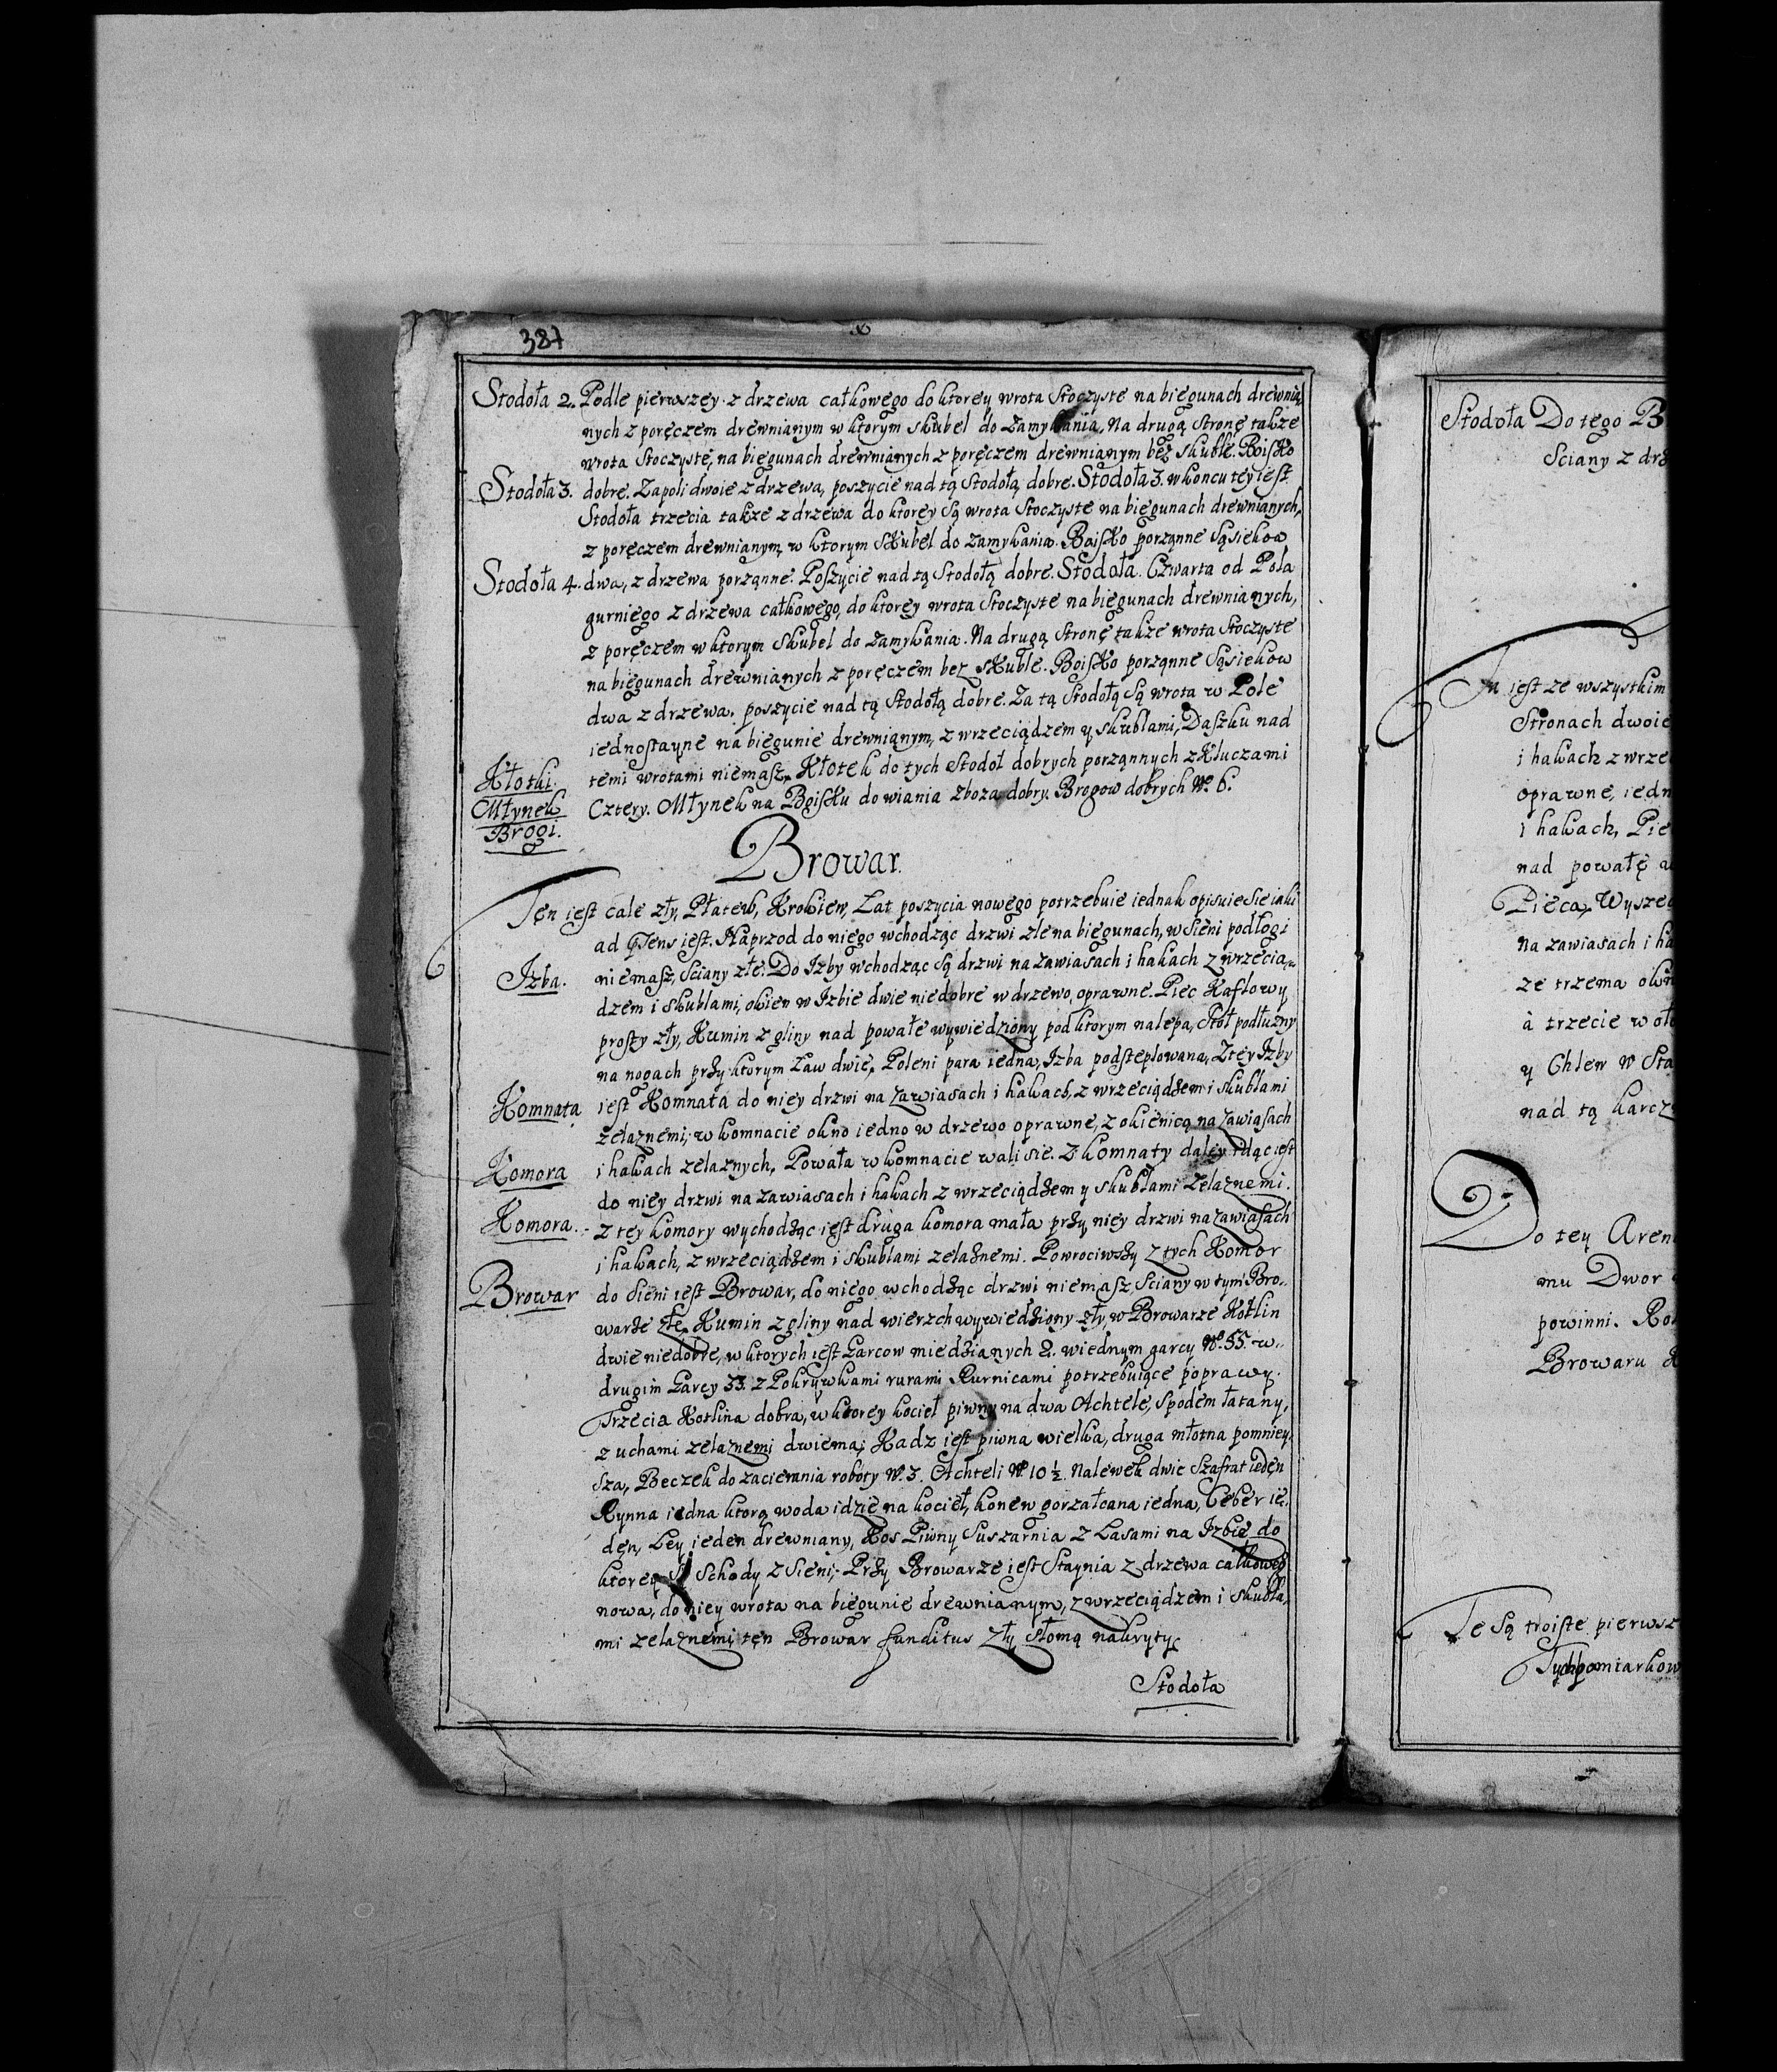 387
Stodoła 2. Podle pierwszey z drzewa całkowego do ktorey wrota Stoczyste na biegunach drewnia,
nych z poręczem drewnianym w ktorym skubel do zamykania, Na drugą Stronę także
wrota Stoczyste, na biegunach drewnianych z poręczem drewnianym bez skuble. Boisko
Stodoła 3. dobre. Zapoli dwoie z drzewa, poszycie nad tą Stodołą dobre. Stodoła 3. w koncu tey iest
Stodoła trzecia także z drzewa do ktorey Są wrota Stoczyste na biegunach drewnianych,
z poręczem drewnianym, w ktorym Skubel do zamykania. Boisko porządne Sąsiekow
Stodoła 4. dwa, z drzewa porządne. Poszycie nad tą Stodołą dobre. Stodoła. Czwarta od Pola
gurniego z drzewa całkowego, do ktorey wrota Stoczyste na biegunach drewnianych,
z poręczem w ktorym Skubel do zamykania. Na drugą Stronę także wrota Stoczyste
na biegunach drewnianych z poręczem bez skuble. Boisko porządne Sąsiekow
dwa z drzewa, poszycie nad tą Stodołą dobre. Za tą Stodołą Są wrota w Pole
iednostayne na biegunie drewnianym, z wrzeciądzem y skublami, Daszku nad
Kłotki. temi wrotami niemasz, Kłotek do tych Stodoł dobrych porządnych z Kluczami
Młynek Cztery. Młynek na Boisku do wiania zboza dobry. Brogow dobrych No. 6.
Brogi.
Browar.
Ten iest cale zły, Płatew, Krokiew, Łat poszycia nowego potrzebuie iednak opisuie Sie iaki
ad præsens iest. Naprzod do niego wchodząc drzwi złe na biegunach, w Sieni podłogi
Izba. niemasz, Sciany złe. Do Izby wchodząc są drzwi na zawiasach i hakach z wrzecią,,
dzem i skublami, okien w Izbie dwie niedobre w drzewo oprawne. Piec Kaflowy
prosty zły, Kumin z gliny nad powałe wywiedziony pod ktorym nalepa, Stoł podłużny
na nogach przy ktorym Ław dwie, Poleni para iedna, Izba podsteplowana, Z tey Izby
Komnata iest Komnata do niey drzwi na zawiasach i hakach, z wrzeciądzem i skublami
zelaznemi; w komnacie okno iedno w drzewo oprawne, z okienicą na zawiasach
Komora i hakach zelaznych, Powała w komnacie wali sie. Z komnaty daley idąc iest
do niey drzwi na zawiasach i hakach z wrzeciądzem y skublami zelaznemi.
Komora. z tey komory wychodząc iest druga komora mała przy niey drzwi na zawiasach
i hakach, z wrzeciądzem i skublami zelaznemi. Powrociwszy z tych Komor
Browar do Sieni iest Browar, do niego wchodząc drzwi niemasz, Sciany w tym Bro,,
warze złe, Kumin z gliny nad wierzch wywiedziony zły, w Browarze Kotlin
dwie niedobre, w ktorych iest Garcow miedzianych 2. w iednym garcy No. 55. w,,
drugim Garcy 33. z Pokrywkami rurami Rurnicami potrzebuiące poprawy.
Trzecia Kotlina dobra, w ktorey kocieł piwny na dwa Achtele, spodem łatany,
z uchami zelaznemi dwiema; Kadz iest piwna wielka, druga młotna pomniey,
sza, Beczek do zacierania roboty No. 3. Achteli No 10 ½. Nalewek dwie Szaflat ieden
Rynna iedna ktorą woda idzie na kocieł, konew gorzałcana iedna, Ceber ie,
den, Ley ieden drewniany, Kos Piwny Suszarnia z Lasami na Izbie do
ktorey Są Schody z Sieni; Przy Browarze iest Staynia z drzewa całkowego
nowa, do niey wrota na biegunie drewnianym, z wrzeciądzem i Skubla,
mi zelaznemi, ten Browar funditus zły słomą nakryty.
Stodoła
Stodoła Do tego B
Sciany z drz
iest ze wszystkim
Stronach dwoie
i hakach z wrze
oprawne, iedn
i hakach, Pie
nad powałę
Pieca, Wyszed
na zawiasach i ha
ze trzema okn
à trzecie w oł
y Chlew w Sta
nad tą karcz
Do tey Aren
mu Dwor
powinni.
Browaru
Te Są troiste pierwsz
Tych pomiarkow